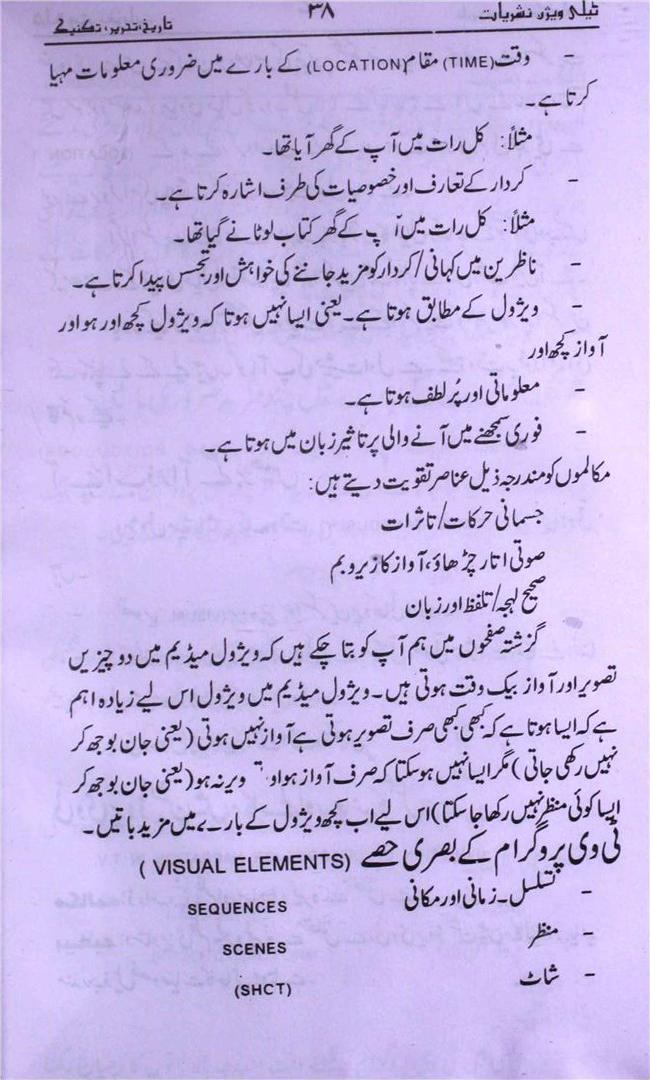 ٹیلی ویژن نشریات ۳۸ تاریخ، تحریر، تکنیک
- وقت (TIME) مقام (LOCATION) کے بارے میں ضروری معلومات مہیا
کرتا ہے۔
مثلاً: کل رات میں آپ کے گھر آیا تھا۔
- کردار کے تعارف اور خصوصیات کی طرف اشارہ کرتا ہے۔
مثلاً: کل رات میں آپ کے گھر کتاب لوٹانے گیا تھا۔
- ناظرین میں کہانی/کردار کو مزید جاننے کی خواہش اور تجسس پیدا کرتا ہے۔
- ویژول کے مطابق ہوتا ہے۔ یعنی ایسا نہیں ہوتا کہ ویژول کچھ اور ہو اور
آواز کچھ اور
- معلوماتی اور پُر لطف ہوتا ہے۔
- فوری سمجھنے میں آنے والی پر تاثیر زبان میں ہوتا ہے۔
مکالموں کو مندرجہ ذیل عناصر تقویت دیتے ہیں:
جسمانی حرکات/تاثرات
صوتی اتار چڑھاؤ، آواز کا زیر و بم
صحیح لہجہ/تلفظ اور زبان
گزشتہ صفحوں میں ہم آپ کو بتا چکے ہیں کہ ویژول میڈیم میں دو چیزیں
تصویر اور آواز بیک وقت ہوتی ہیں۔ ویژول میڈیم میں ویژول اس لیے زیادہ اہم
ہے کہ ایسا ہوتا ہے کہ کبھی کبھی صرف تصویر ہوتی ہے آواز نہیں ہوتی (یعنی جان بوجھ کر
نہیں رکھی جاتی) مگر ایسا نہیں ہو سکتا کہ صرف آواز ہو او ویر نہ ہو (یعنی جان بوجھ کر
ایسا کوئی منظر نہیں رکھا جا سکتا) اس لیے اب کچھ ویژول کے بارے میں مزید باتیں۔
ٹی وی پروگرام کے بصری حصے (VISUAL ELEMENTS)
- تسلسل۔ زمانی اور مکانی
SEQUENCES
- منظر
SCENES
- شاٹ
(SHCT)